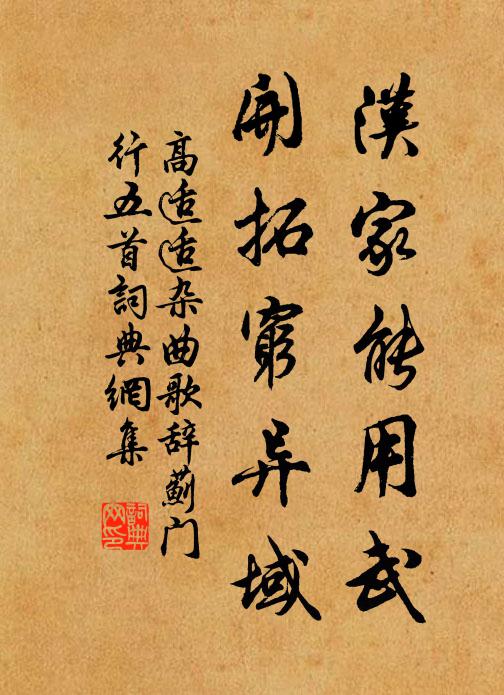 漢家能用武
開拓窮异域
高适适杂曲歌辞薊门
行五首詞典網集
詞典
网印